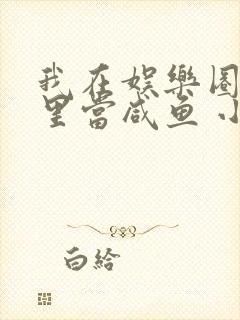 我在娱樂圈
里當咸鱼小
白給